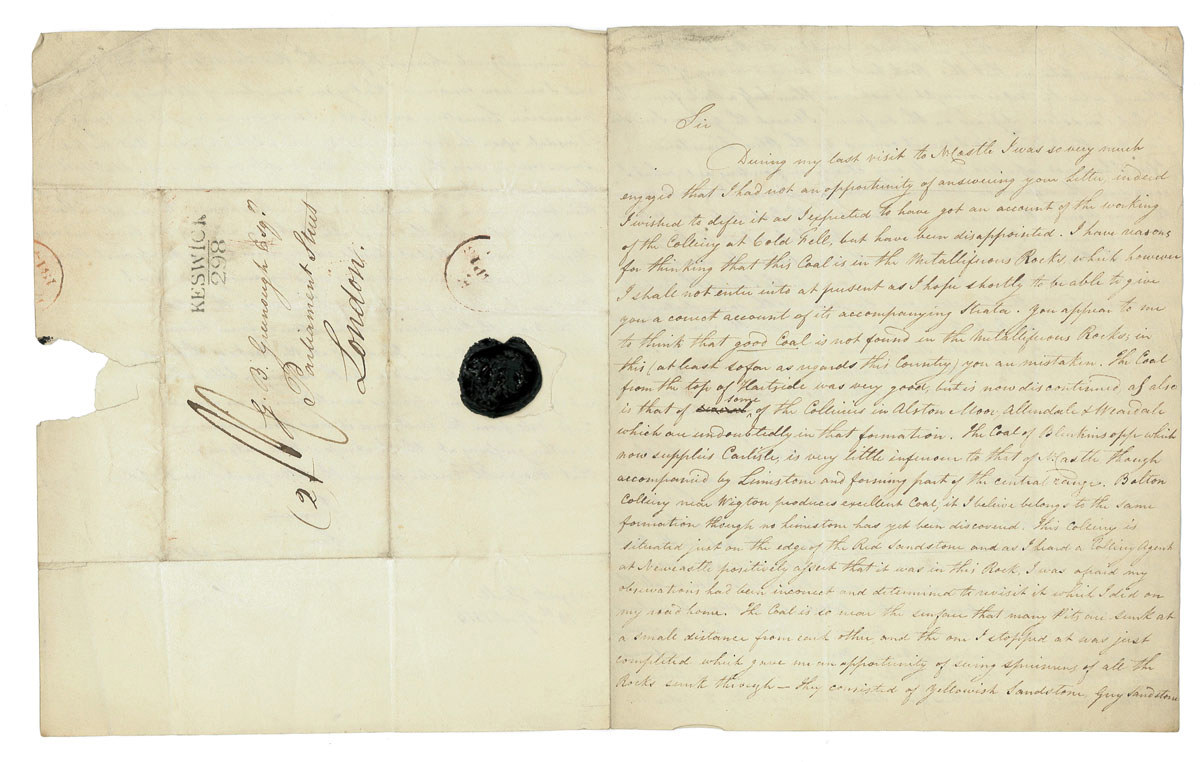 KESWICK
298
G. B. Greenough Esqr.
Parliament Street
London.
Sir
During my last visit to NCastle I was so very much
engaged that I had not an opportunity of answering your Letter, indeed
I wished to defer it as I expected to have got an account of the working
of the Colliery at Cold Fell, but have been disappointed. I have reasons
for thinking that this Coal is in the Metalliferous Rocks which however
I shall not enter into at present as I hope shortly to be able to give
you a correct account of its accompanying Strata. You appear to me
to think that good Coal is not found in the Metalliferous Rocks; in
this (at least so far as regards this Country) you are mistaken. The Coal
from the top of Hartside was very good, but is now discontinued, as also
is that of some of the Collieries in Alston Moor, Allendale & Weardale
which are undoubtedly in that formation. The Coal of Blenkinsopp which
now supplies Carlisle, is very little inferiour to that of NCastle though
accompanied by Limestone and forming part of the central range. Bolton
Colliery near Wigton produces excellent Coal, it I believe belongs to the same
formation though no limestone has yet been discovered. This Colliery is
situated just on the edge of the Red Sandstone and as I heard a Colliery Agent
at Newcastle positively assert that it was in this Rock, I was afraid my
observations had been incorrect and determined to revisit it which I did on
my road home. The Coal is so near the surface that many Pits are sunk at
a small distance from each other and the one I stopped at was just
completed which gave me an opportunity of seeing specimens of all the
Rocks sunk through — they consisted of Yellowish Sandstone, Grey Sandstone